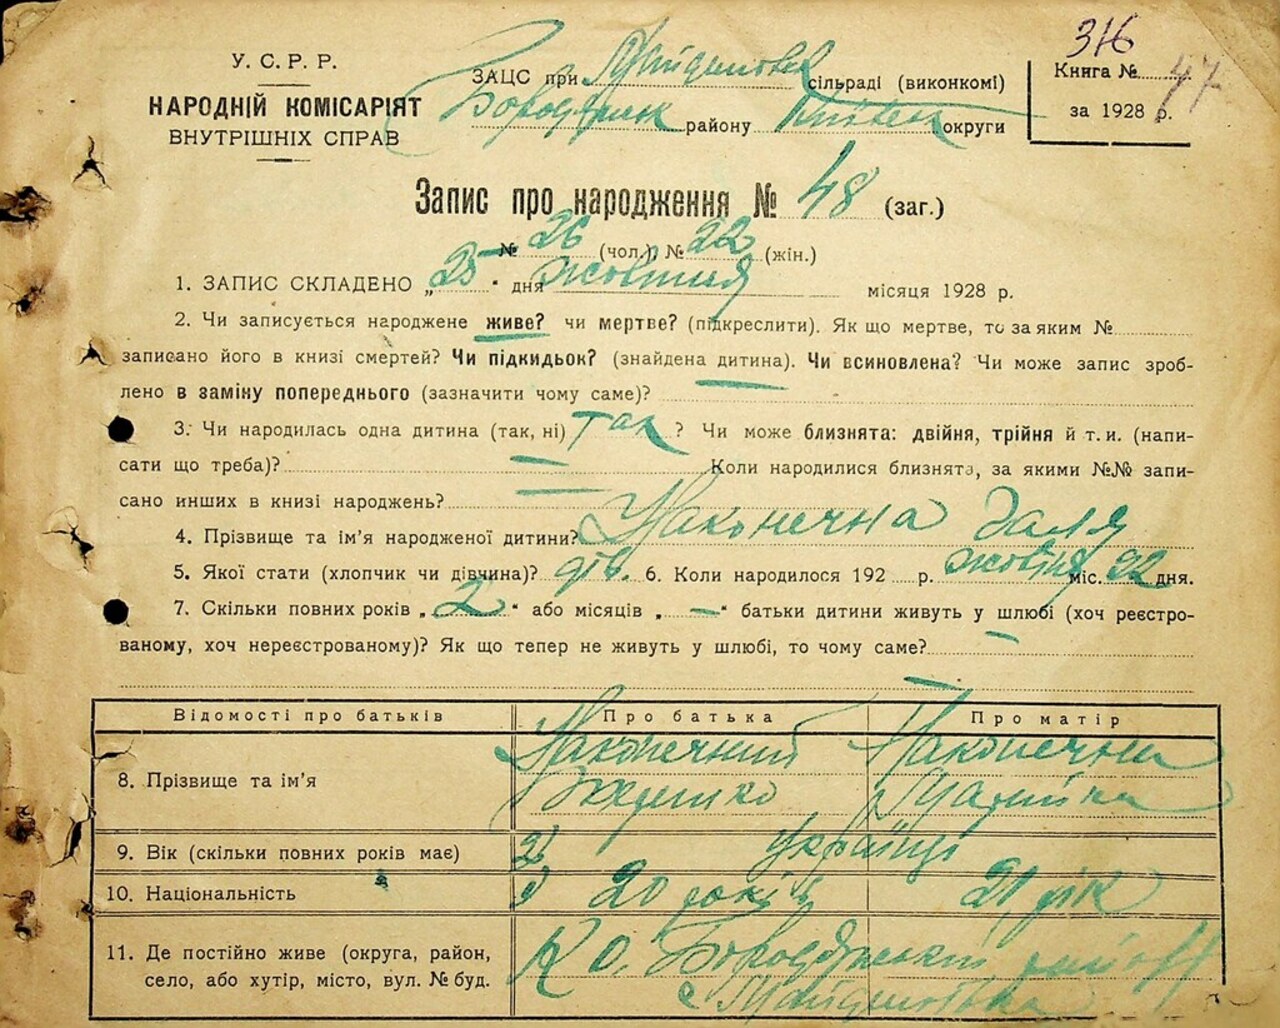 316
У. С. Р. Р.
НАРОДНІЙ КОМІСАРІЯТ
ВНУТРІШНІХ СПРАВ
ЗАЦС при сільраді (виконкомі)
району округи
Книга № 47
за 1928 р.
Запис про народження № 48 (заг.)
№ 26 (чол.), № 22 (жін.)
1. ЗАПИС СКЛАДЕНО „25“ дня жовтня місяця 1928 р.
2. Чи записується народжене живе? чи мертве? (підкреслити). Як що мертве, то за яким №
записано його в книзі смертей? Чи підкидьок? (знайдена дитина). Чи всиновлена? Чи може запис зроб-
лено в заміну попереднього (зазначити чому саме)? —
3. Чи народилась одна дитина (так, ні) так ? Чи може близнята: двійня, трійня й т. и. (напи-
сати що треба)? — Коли народилися близнята, за якими №№ запи-
сано инших в книзі народжень? —
4. Прізвище та ім’я народженої дитини? Наконечна Галя
5. Якої стати (хлопчик чи дівчина)? дів. 6. Коли народилося 192 р. жовтня міс. 22 дня.
7. Скільки повних років „2“ або місяців „—“ батьки дитини живуть у шлюбі (хоч реєстро-
ваному, хоч нереєстрованому)? Як що тепер не живуть у шлюбі, то чому саме? —
—
Відомості про батьків Про батька Про матір
8. Прізвище та ім’я Наконечний Наконечна
9. Вік (скільки повних років має) Українці
10. Національність 20 років 21 рік
11. Де постійно живе (округа, район, К о. Бородянський район
село, або хутір, місто, вул. № буд. с Майданівка